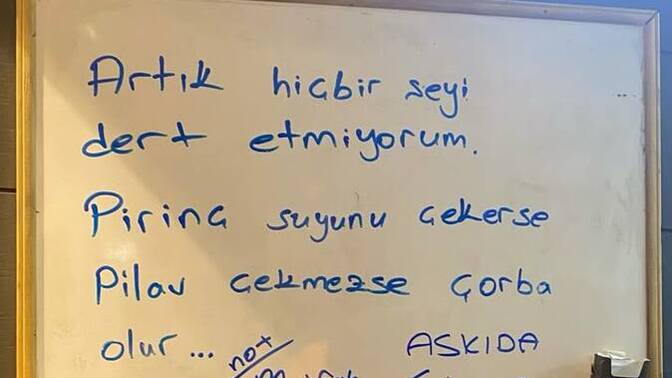 Artık hiçbir şeyi
dert etmiyorum.
Pirinç suyunu çekerse
Pilav çekmezse Çorba
olur... ASKIDA
not